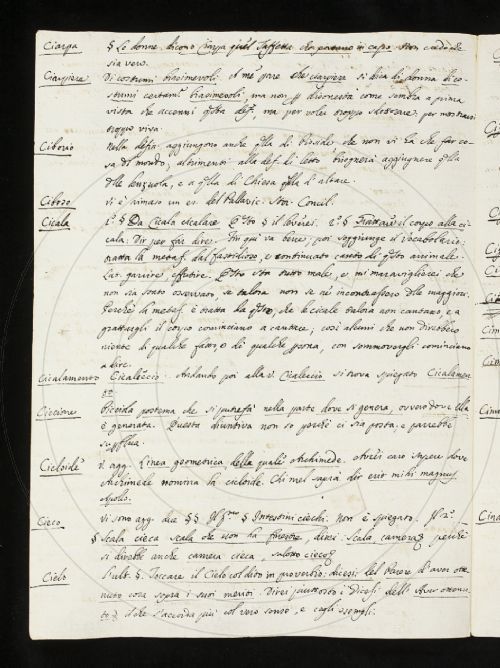 Ciarpa § Le donne dicono Ciarpa quel Taffettà che portano in capo. Non credo che
sia vero.
Ciarpiere Di costumi biasimevoli. A me pare che ciarpiere si dica di donna di co-
stumi biasimevoli ma non disonesta come sembra a prima
vista che accenni def. ma per voler troppo per mostrarsi
troppo viva.
Ciborio Nella defin. aggiungono anche di che non vi ha che far co-
sa del mondo; altrimenti alla def. di letto bisognerà aggiugnere
delle lenzuola, e a di Chiesa altare.
Ciboso vi è rimaso un es. del Pallavic. Stor. Concil.
Cicala 1.° § Da Cicala cicalare. § il 2.° § Grattare il corpo alla ci-
cala: Dir per far dire. Fin qui va bene; poi soggiunge il vocabolario:
tratta la metaf. dal fastidioso, e continuato canto di questo animale.
Lat. garrire effutire. sta molto male, e mi maravigliarei che
non sia stato osservato, se talora non se ne incontrassero delle maggiori.
Perchè la metaf. è tratta da che le cicale talora non cantano, e a
grattargli il corpo cominciano a cantare; così alcuni che non direbbero
niente di qualche fatto di qualche persona, con sommovergli cominciano
a dire.
Cicalamento Cicaleccio. Andando poi alla v. Cicaleccio si trova spiegato Cicalamen-
to
Ciccione Piccola postema che si putrefà nella parte dove si genera, ovvero dove ella
è generata. Questa disgiuntiva non so perchè ci sia posta, e parrebbe
superflua.
Cicloide v. agg. Linea geometrica della quale Archimede. Avrei caro sapere dove
Archimede nomina la cicloide. Chi mel saprà dir erit mihi magnus
Apollo.
Cieco Vi sono agg. due §§ § Intestini ciechi. Non è spiegato.
§ Scala cieca scala che non ha finestre, direi: Scala camera perchè
si direbbe anche camera cieca, salotto cieco
Cielo § Toccare il Cielo col dito in proverbio; dicesi del Parere d'aver otte-
nuto cosa sopra i suoi meriti. Direi piuttosto: dicesi dell' Aver ottenu-
to che s'accosta più col vero senso, e cogli esempli.